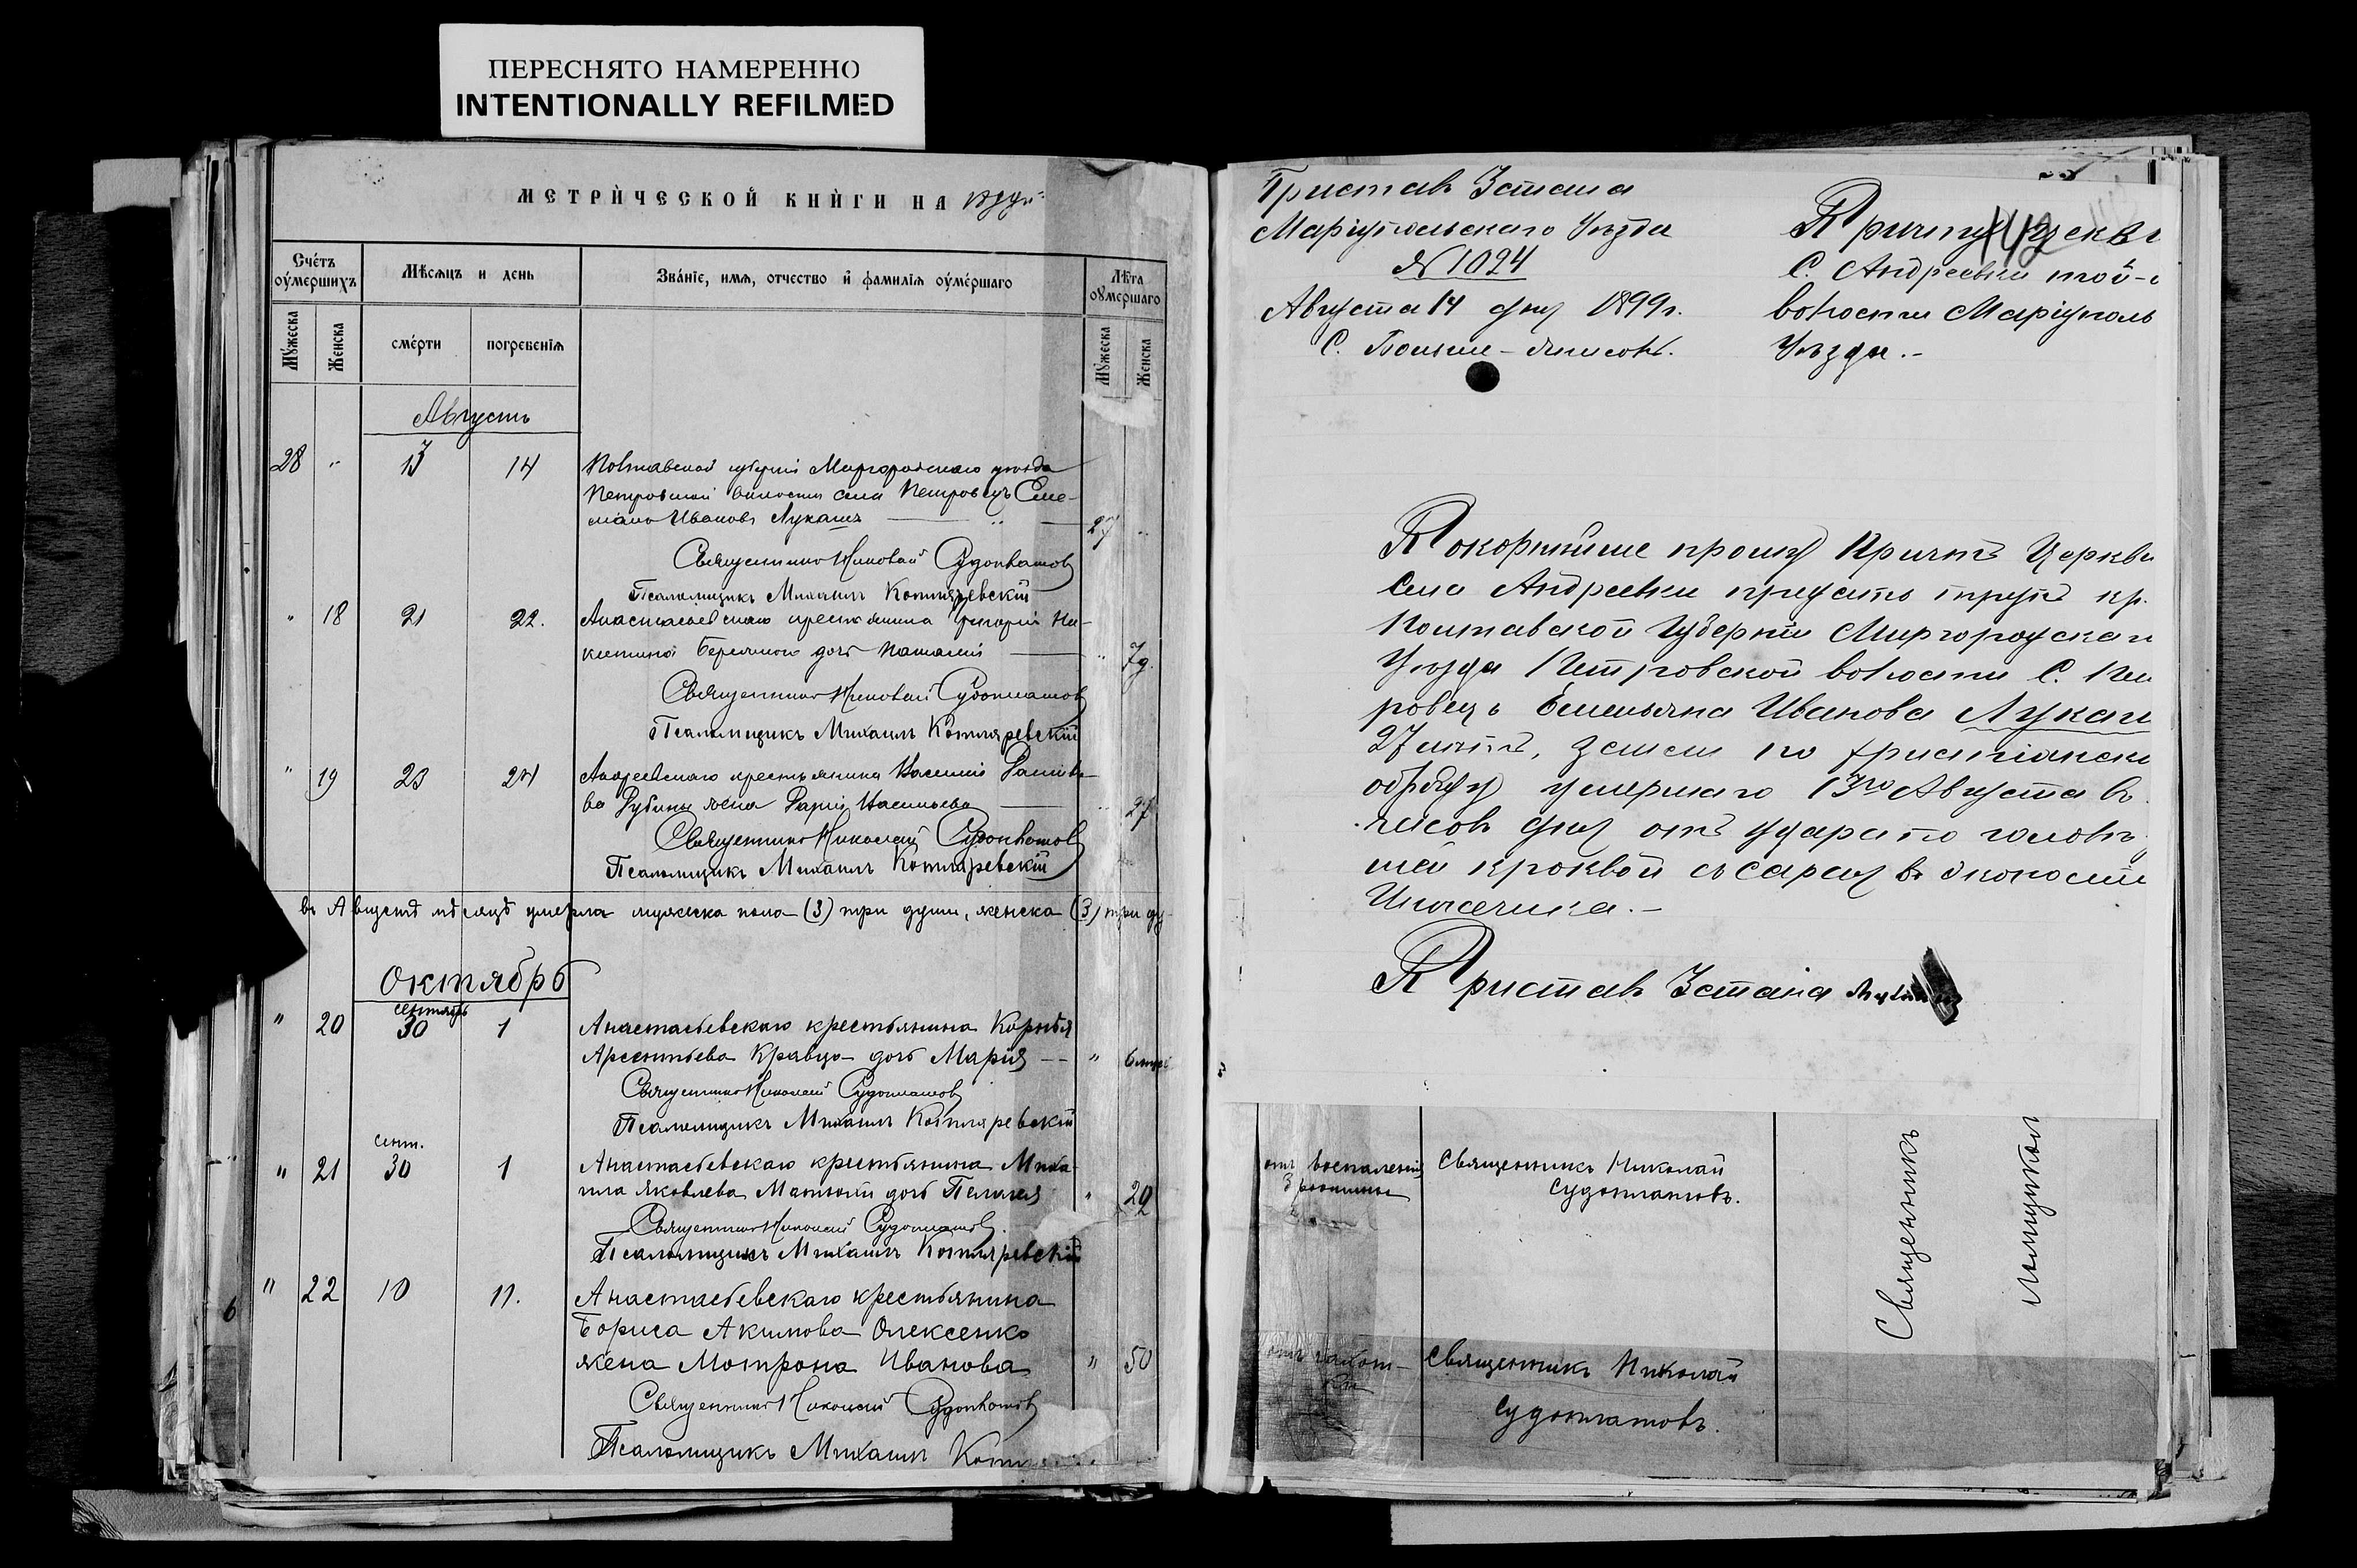 ПЕРЕСНЯТО НАМЕРЕННО
INTENTIONALLY REFILMED
МЕТРИЧЕСКОЙ КНИГИ НА
Счетъ оумершихъ
Мѣсяцъ и день
Званіе, имя, отчество и фамилія оумершаго
Лѣта оумершаго
Мужеска
Женска
смерти
погребенія
Мужеска
Женска
Августъ
28 " 13 14 Полтавской губерніи Миргородскаго уѣзда
Петровской волости села Петровецъ Еме-
ліанъ Ивановъ Лукашъ 27
Священникъ Николай Судоплатовъ
Псаломщикъ Михаилъ Котляревскій
" 18 21 22. Анастасіевскаго крестьянина Григорія Ни-
китина дочь Наталія " 7д.
Священникъ Николай Судоплатовъ
Псаломщикъ Михаилъ Котляревскій
" 19 23 24 Андреевскаго крестьянина Василія
ва жена Дарія Васильева " 27
Священникъ Николай Судоплатовъ
Псаломщикъ Михаилъ Котляревскій
въ Августѣ мѣсяцѣ умерла мужеска пола (3) три души, женска (3) три ду
Октябрь
" 20 сентябрь 30 1 Анастасьевскаго крестьянина Корнѣя
Арсентьева Кравца дочь Марія " 6
Священникъ Николай Судоплатовъ
Псаломщикъ Михаилъ Котляревскій
сент.
" 21 30 1 Анастасьевскаго крестьянина Миха-
ила Яковлева дочь Пелагея " 29
Священникъ Николай Судоплатовъ
Псаломщикъ Михаилъ Котляревскій
" 22 10 11. Анастасьевскаго крестьянина
Бориса Акимова Олексенко
жена Мотрона Иванова " 50
Священникъ Николай Судоплатовъ
Псаломщикъ Михаилъ
6
Приставъ 3 стана
Маріупольскаго Уѣзда
№ 1024
Августа 14 дня 1899 г.
С. Больше-Янисоль.
Причту Церкви
С. Андреевки той-
волости Маріуполь
Уѣзда.-
112
Покорнѣйше прошу Причтъ Церкви
Села Андреевки предать трупъ кр.
Полтавской Губерніи Миргородскаго
Уѣзда Петровской волости С. Пет
ровецъ Емельяна Иванова Лукаш
27 лѣтъ, землѣ по христіанск
обряду умершаго 13го Августа въ
часовъ дня отъ удара по головѣ
кроквой съ сарая въ экономіи
Приставъ 3 стана
отъ воспаленія
Священникъ Николай
Судоплатовъ.
отъ чахот-
ки
Священникъ Николай
Судоплатовъ.
Священникъ